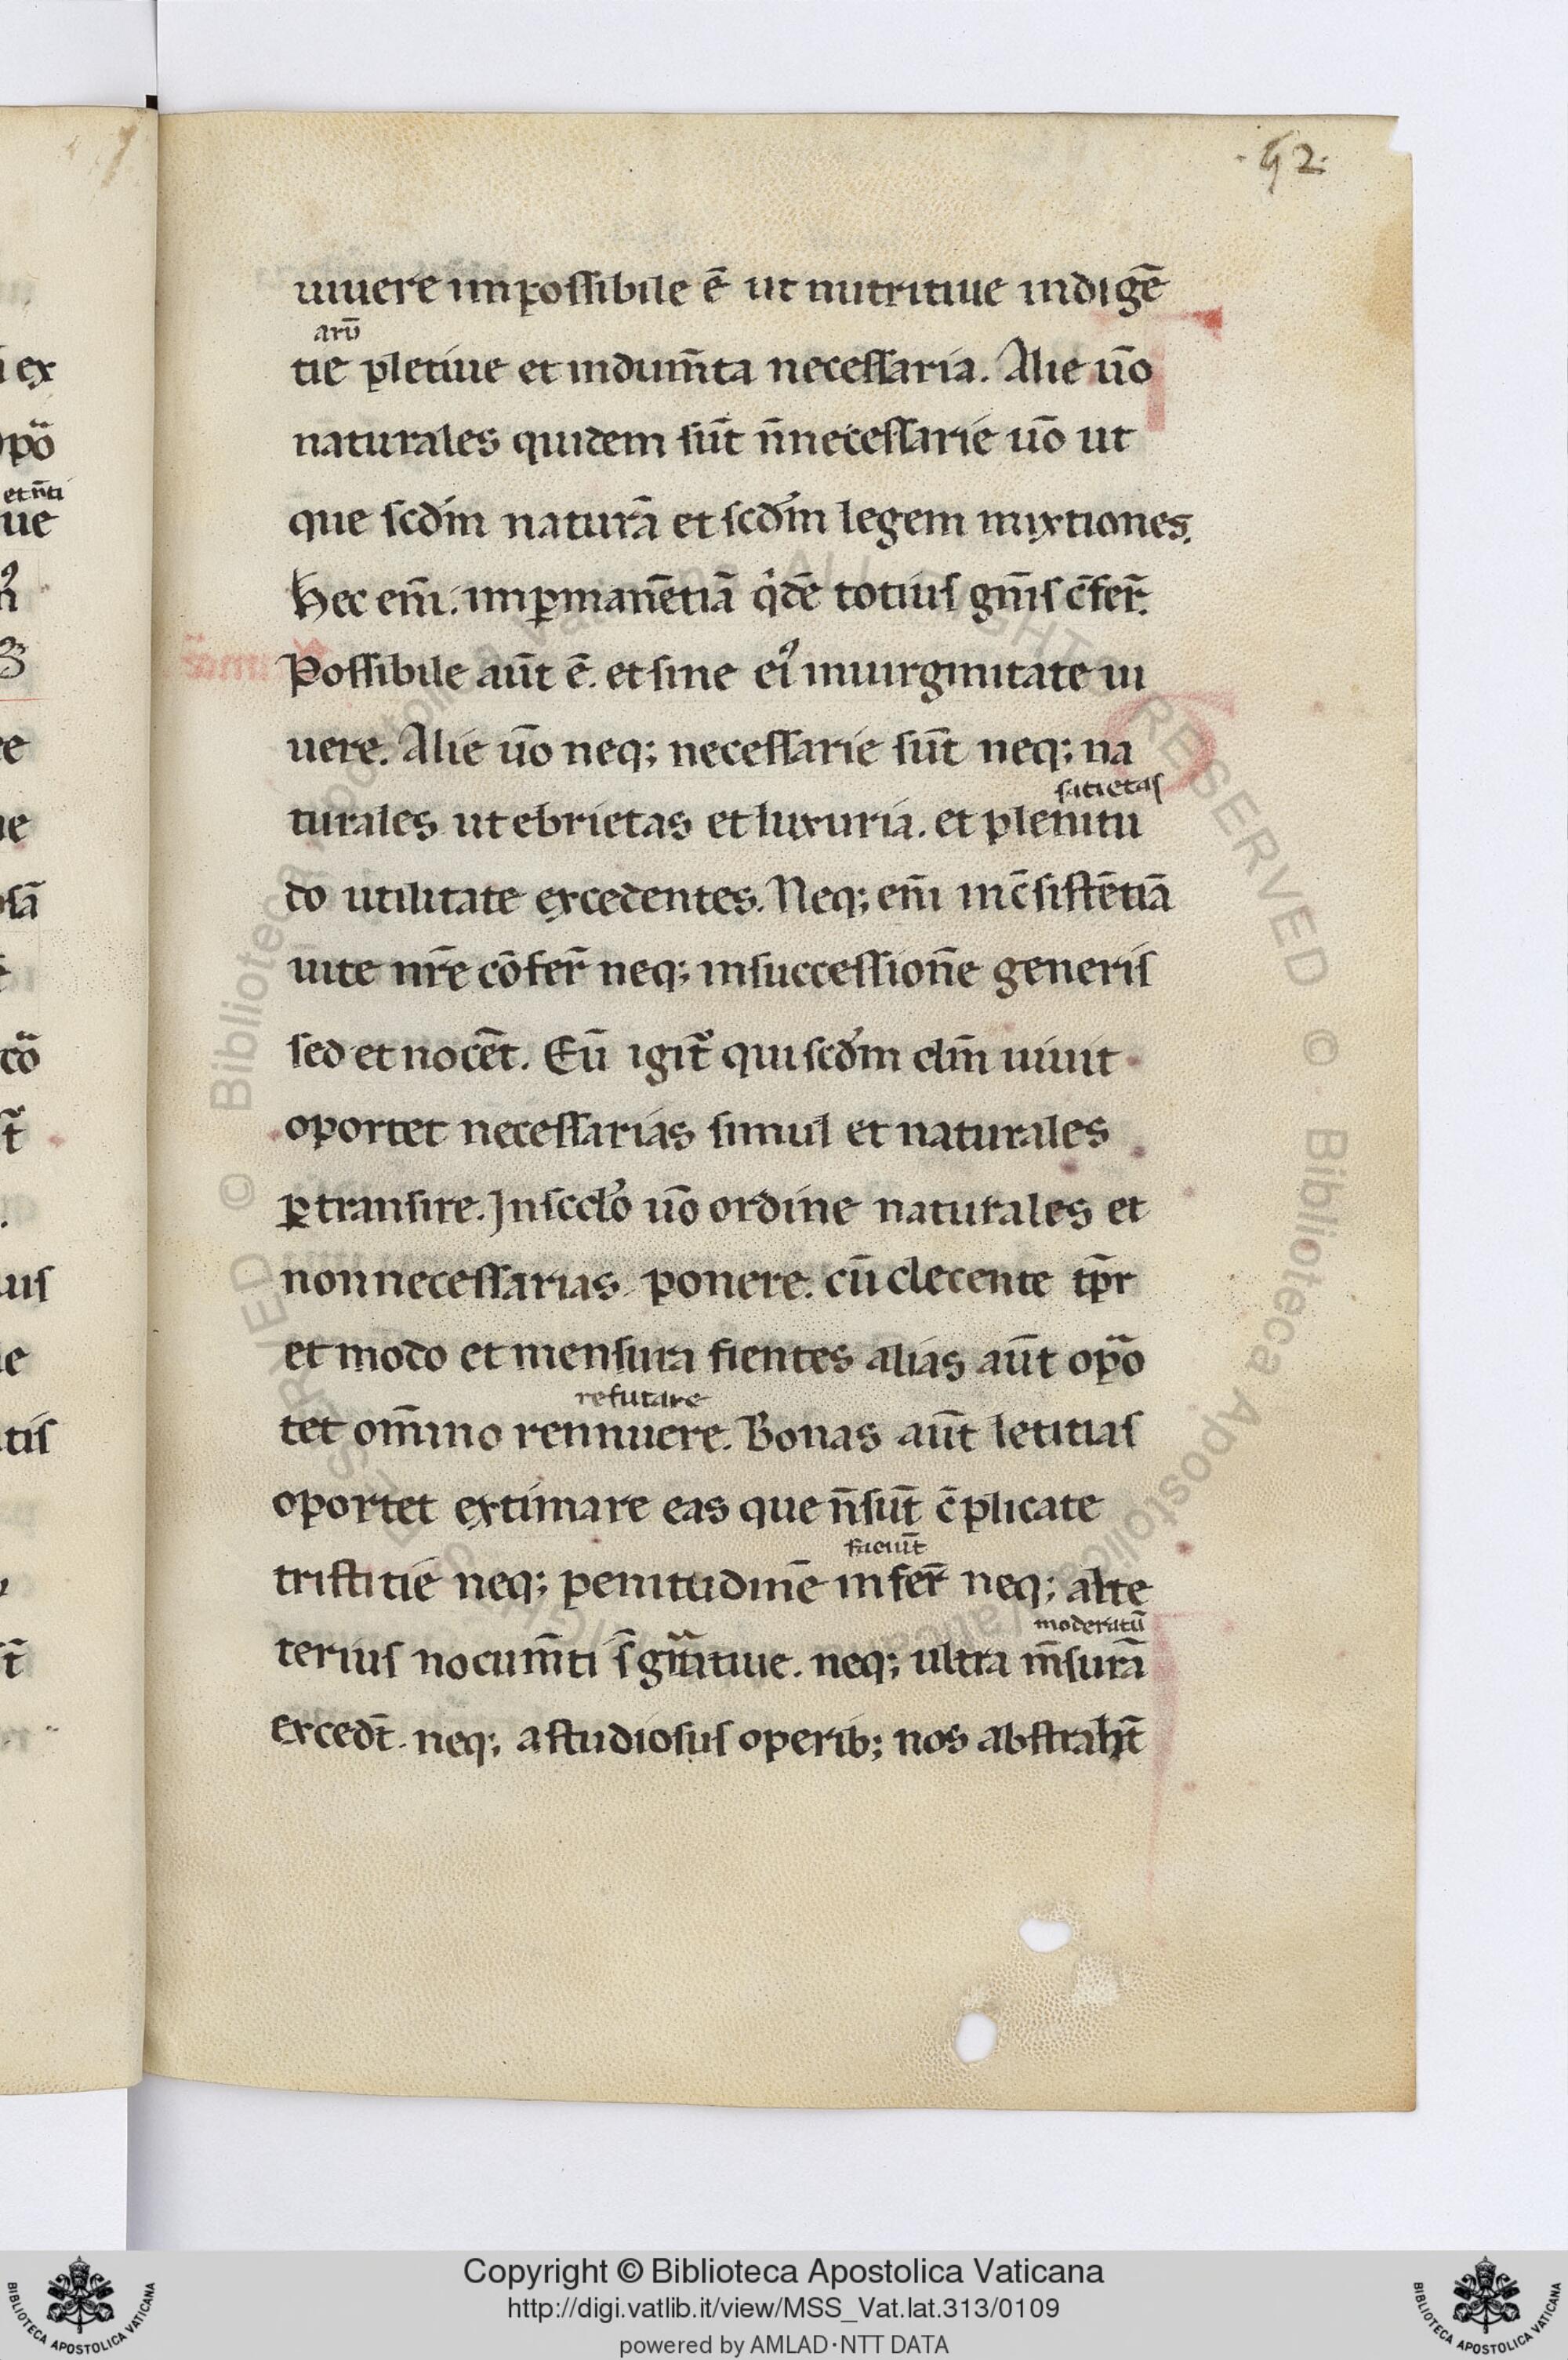 ·52·
uiuere impossibile ē ut nutritiue indigē
arū
tie p̱letiue et indum̄ta necessaria. Alie ūo
naturales quidem sūt n̄necessarie ūo ut
que scdm naturā et scdm legem mixtiones.
Hec em̄. imꝑmanētiā q̇dē totius gn̄is c̄fer̄.
Possibile aūt ē. et sine eiꝰ inuirginitate ui
uere. Alie ūo neq; necessarie sūt neq; na
satietas
turales ut ebrietas et luxuria. et plenitu
do utilitate excedentes. Neq; em̄ inc̄sistētiā
uite nr̄e cōfer̄ neq; insuccessionē generis
sed et nocēt. Eū igit᷑ qui scdm dm̄ uiuit
oportet necessarias simul et naturales
ꝑtransire. Insecd̊o ūo ordine naturales et
nonnecessarias ponere. cū decente tp̄r
et modo et mensura fientes alias aūt opo᷑
refutare
tet om̄ino rennuere. Bonas aūt letitias
oportet extimare eas que n̄sūt c̄plicate
faciūt
tristitie neq; penitudinē infer̄ neq; alte
moderatū
terius nocum̄ti s̄ gn̄atiue. neq; ultra m̄surā
excedt̄. neq; a studiosus operib; nos abstraht̄
ex
Copyright © Biblioteca Apostolica Vaticana
http://digi.vatlib.it/view/MSS_Vat.lat.313/0109
powered by AMLAD·NTT DATA
BIBLIOTECA APOSTOLICA VATICANA
BIBLIOTECA APOSTOLICA VATICANA